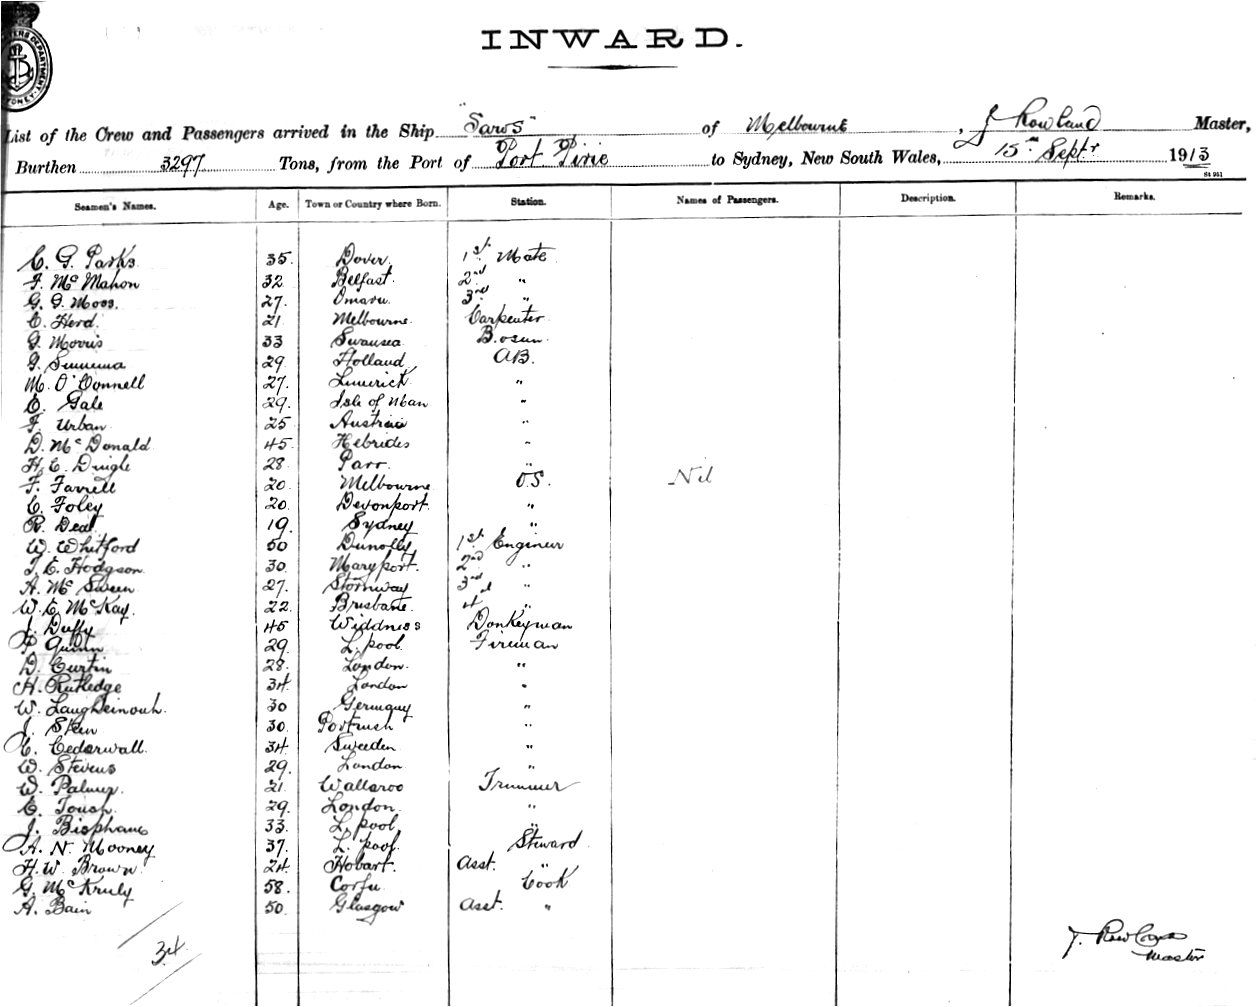 INWARD.
List of the Crew and Passengers arrived in the Ship "Saros" of Melbourne, J Rowland Master,
Burthen 3297 Tons, from the Port of Port Pirie to Sydney, New South Wales, 15th Septr 1913
Seamen's Names. Age. Town or Country where Born. Station. Names of Passengers. Description. Remarks.
C. G. Parks 35 Dover. 1st Mate
F. Mc Mahon 32 Belfast. 2nd "
G. G. Moss. 27. Omaru. 3rd "
C. Herd. 21 Melbourne. Carpenter
G. Morris 33 Swansea Bosun.
G. 29 Holland AB.
M. O'Connell 27. Limerick "
E. Gale 29. Isle of Man "
F. Urban 25 Austria "
D. Mc Donald 45 Hebrides "
H. C. Dingle 28 Parr. "
F. Farrell 20 Melbourne O.S. Nil
C. Foley 20. Devonport. "
R. Deal 19. Sydney "
W. Whitford 50 Dunolly 1st Engineer
T. E. Hodgson 30. Maryport. 2nd "
A. Mc Sween 27. Stornway 3rd "
W. E. McKay. 22. Brisbane 4 "
J. Duffy 45 Widdness Donkeyman
P Quinn 29. L. pool. Fireman
D. Curtin 28. London. "
H. Rutledge 34. London "
W. 30 Germany "
J. Stein 30. Portrush "
C. Cederwall. 34 Sweeden "
W. Stevens 29. London "
W. Palmer. 21 Wallaroo Trimmer
C. 29. London. "
J. Bispham 33. L. pool "
A. N. Mooney 37. L. pool. Steward
H. W. Brown 24. Hobart. Asst. "
G. Mc 58. Corfu Cook
A. Bain 50. Glasgow Asst. "
34
J. Rowland
Master